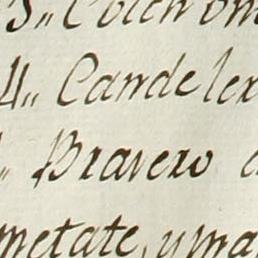 3,, Colchon
4,, Candeler
Bravero
metate, y ma